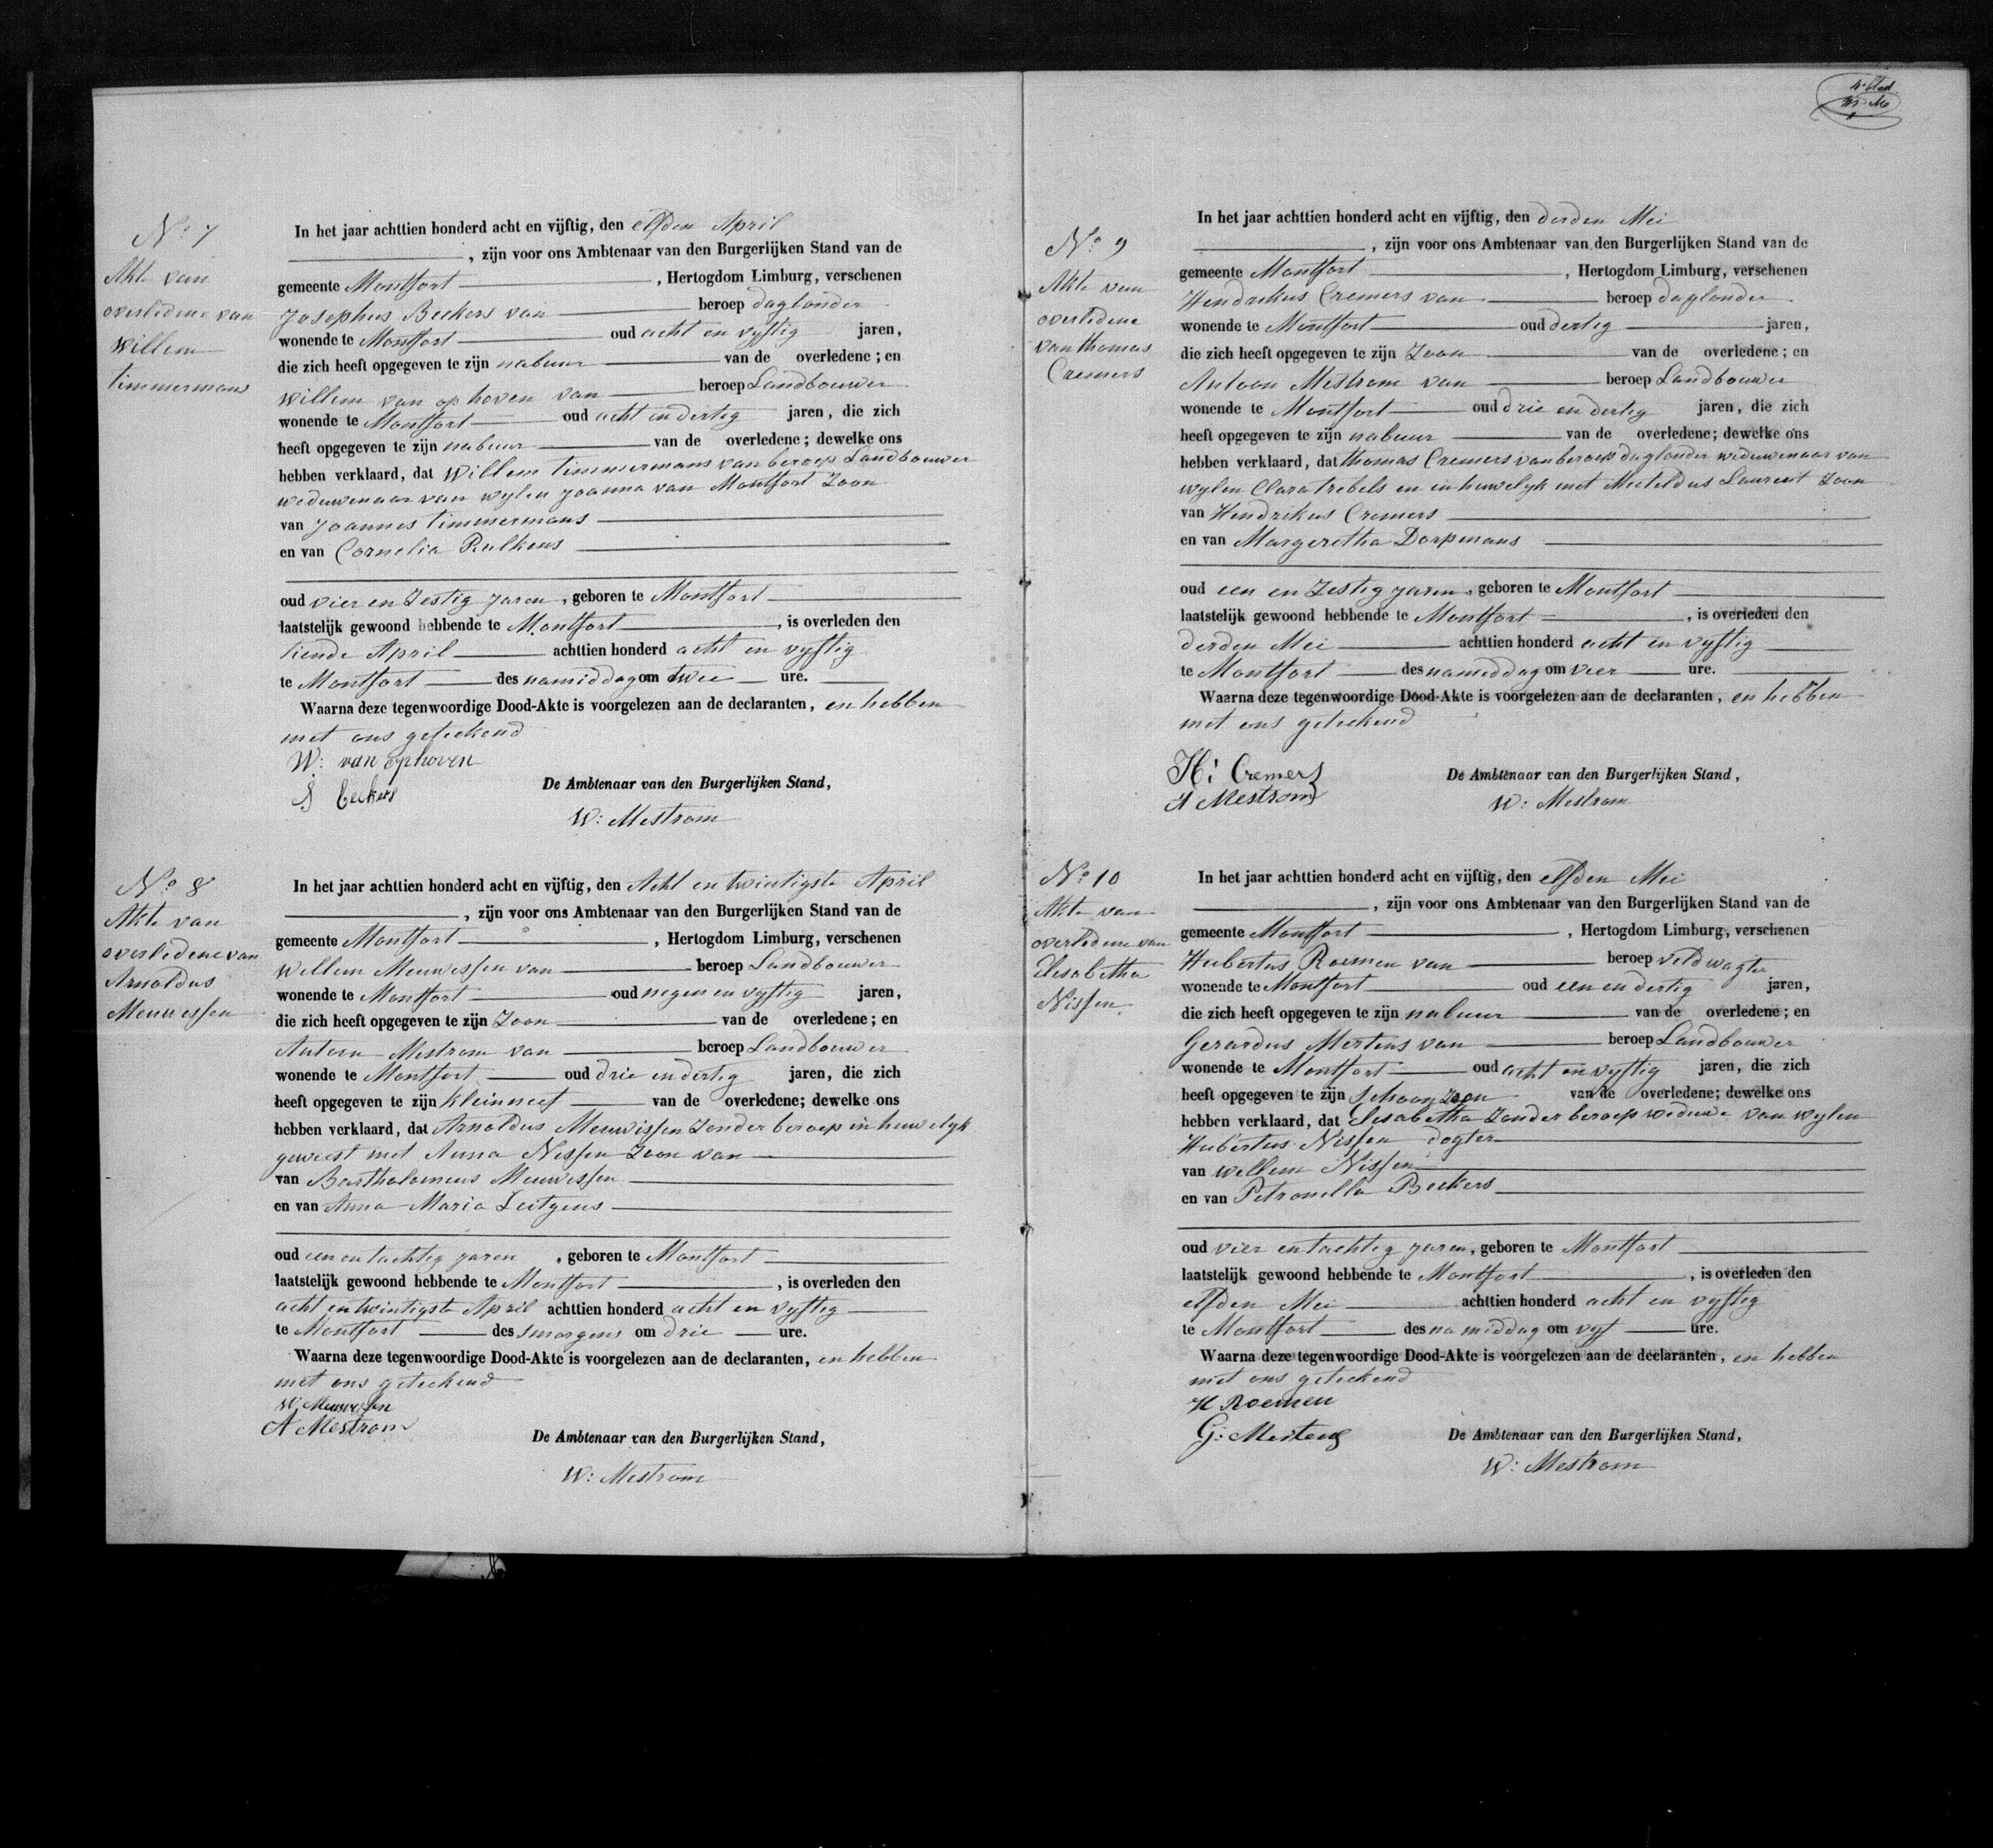 No 7
Akte van
overledene van
Willem
timmermans
In het jaar achttien honderd acht en vijftig, den elfden April
, zijn voor ons Ambtenaar van den Burgerlijken Stand van de
gemeente Montfort , Hertogdom Limburg, verschenen
Josephus Beckers van beroep daglonder
wonende te Montfort oud acht en vyftig jaren,
die zich heeft opgegeven te zijn nabuur van de overledene; en
Willem van op hoven van beroep Landbouwer
wonende te Montfort oud acht en dertig jaren, die zich
heeft opgegeven te zijn nabuur van de overledene; dewelke ons
hebben verklaard, dat Willem timmermans van beroep Landbouwer
weduwenaar van wylen Joanna van Montfort Zoon
van Joannes timmermans
en van Cornelia Rulkens
oud vier en Zestig jaren, geboren te Montfort
laatstelijk gewoond hebbende te Montfort , is overleden den
tiende April achttien honderd acht en vyftig
te Montfort des namiddag om twee ure.
Waarna deze tegenwoordige Dood-Akte is voorgelezen aan de declaranten, en hebben
met ons geteekend
W: van ophoven
J Beckers
De Ambtenaar van den Burgerlijken Stand,
W: Mestrom
No 8
Akte van
overledene van
Arnoldus
Meuwissen
In het jaar achttien honderd acht en vijftig, den Acht en twintigste April
, zijn voor ons Ambtenaar van den Burgerlijken Stand van de
gemeente Montfort , Hertogdom Limburg, verschenen
Willem Meuwissen van beroep Landbouwer
wonende te Montfort oud negen en vyftig jaren,
die zich heeft opgegeven te zijn Zoon van de overledene; en
Antoon Mestrom van beroep Landbouwer
wonende te Montfort oud drie en dertig jaren, die zich
heeft opgegeven te zijn kleinneef van de overledene; dewelke ons
hebben verklaard, dat Arnoldus Meuwissen Zonder beroep in huwelyk
geweest met Anna Nessen Zoon van
van Bartholomeus Meuwissen
en van Anna Maria Leitgens
oud een en tachtig jaren , geboren te Montfort
laatstelijk gewoond hebbende te Montfort , is overleden den
acht en twintigste April achttien honderd acht en vyftig
te Montfort des smorgens om drie ure.
Waarna deze tegenwoordige Dood-Akte is voorgelezen aan de declaranten, en hebben
met ons geteekend
W: Meuwissen
A Mestrom
De Ambtenaar van den Burgerlijken Stand,
W: Mestrom
No 9
Akte van
overledene
van thomas
Cremers
In het jaar achttien honderd acht en vijftig, den derden Mei
, zijn voor ons Ambtenaar van den Burgerlijken Stand van de
gemeente Montfort , Hertogdom Limburg, verschenen
Hendrikus Cremers van beroep daglonder
wonende te Montfort oud dertig jaren,
die zich heeft opgegeven te zijn Zoon van de overledene; en
Antoon Mestrom van beroep Landbouwer
wonende te Montfort oud drie en dertig jaren, die zich
heeft opgegeven te zijn nabuur van de overledene; dewelke ons
hebben verklaard, dat thomas Cremers van beroep daglonder weduwenaar van
wylen Clara trebels en in huwelyk met Mechteldus Laurent Zoon
van Hendrikus Cremers
en van Margeretha Dorpmans
oud een en Zestig jaren, geboren te Montfort
laatstelijk gewoond hebbende te Montfort , is overleden den
derden Mei achttien honderd acht en vyftig
te Montfort des namiddag om vier ure.
Waarna deze tegenwoordige Dood-Akte is voorgelezen aan de declaranten, en hebben
met ons geteekend
H: Cremers
A Mestrom
De Ambtenaar van den Burgerlijken Stand,
W: Mestrom
No 10
Akte van
overledene van
Elesabetha
Nissen
In het jaar achttien honderd acht en vijftig, den elfden Mei
, zijn voor ons Ambtenaar van den Burgerlijken Stand van de
gemeente Montfort , Hertogdom Limburg, verschenen
Hubertus Roemen van beroep veldwagter
wonende te Montfort oud een en dertig jaren,
die zich heeft opgegeven te zijn nabuur van de overledene; en
Gerardus Mertens van beroep Landbouwer
wonende te Montfort oud acht en vyftig jaren, die zich
heeft opgegeven te zijn schoon Zoon van de overledene; dewelke ons
hebben verklaard, dat Elesabetha Zonder beroep weduwe van wylen
Hubertus Nissen dogter
van Willem Nissen
en van Petronella Beckers
oud vier en tachtig jaren, geboren te Montfort
laatstelijk gewoond hebbende te Montfort , is overleden den
elfden Mei achttien honderd acht en vyftig
te Montfort des namiddag om vyf ure.
Waarna deze tegenwoordige Dood-Akte is voorgelezen aan de declaranten, en hebben
met ons geteekend
H Roemen
G: Mertens
De Ambtenaar van den Burgerlijken Stand,
W: Mestrom